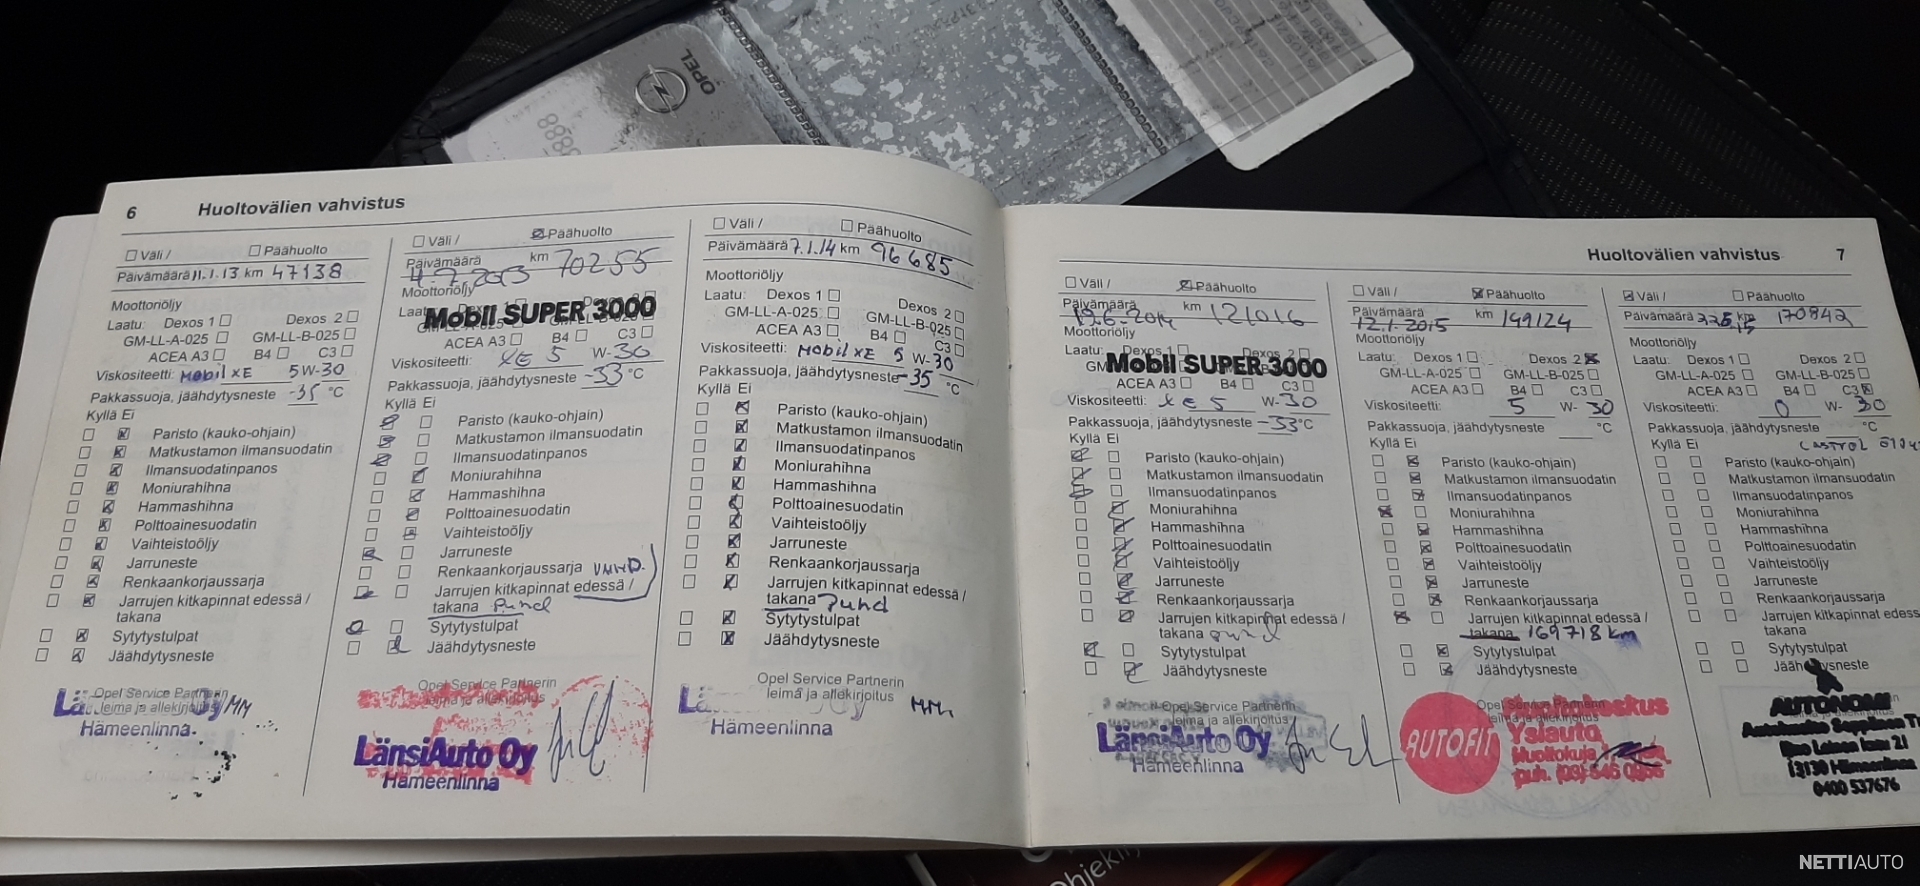 OPEL
6 Huoltovälien vahvistus
Väli / Päähuolto
Päivämäärä 11.1.13 km 47138
Moottoriöljy
Laatu: Dexos 1 Dexos 2
GM-LL-A-025 GM-LL-B-025
ACEA A3 B4 C3
Viskositeetti: Mobil XE 5 W-30
Pakkassuoja, jäähdytysneste -35 °C
Kyllä Ei
Paristo (kauko-ohjain)
Matkustamon ilmansuodatin
Ilmansuodatinpanos
Moniurahihna
Hammashihna
Polttoainesuodatin
Vaihteistoöljy
Jarruneste
Renkaankorjaussarja
Jarrujen kitkapinnat edessä /
takana
Sytytystulpat
Jäähdytysneste
Opel Service Partnerin
leima ja allekirjoitus MM
Hämeenlinna
Väli / Päähuolto
Päivämäärä km 70255
4.7.2013
Moottoriöljy
Mobil SUPER 3000
ACEA A3 B4 C3
Viskositeetti: XE 5 W-30
Pakkassuoja, jäähdytysneste -33 °C
Kyllä Ei
Paristo (kauko-ohjain)
Matkustamon ilmansuodatin
Ilmansuodatinpanos
Moniurahihna
Hammashihna
Polttoainesuodatin
Vaihteistoöljy
Jarruneste
Renkaankorjaussarja
Jarrujen kitkapinnat edessä /
takana
Sytytystulpat
Jäähdytysneste
Opel Service Partnerin
LänsiAuto Oy
Hämeenlinna
Väli / Päähuolto
Päivämäärä 7.1.14 km 96685
Moottoriöljy
Laatu: Dexos 1 Dexos 2
GM-LL-A-025 GM-LL-B-025
ACEA A3 B4 C3
Viskositeetti: Mobil XE 5 W-30
Pakkassuoja, jäähdytysneste -35 °C
Kyllä Ei
Paristo (kauko-ohjain)
Matkustamon ilmansuodatin
Ilmansuodatinpanos
Moniurahihna
Hammashihna
Polttoainesuodatin
Vaihteistoöljy
Jarruneste
Renkaankorjaussarja
Jarrujen kitkapinnat edessä /
takana
Sytytystulpat
Jäähdytysneste
Opel Service Partnerin
leima ja allekirjoitus MM.
Hämeenlinna
Huoltovälien vahvistus 7
Väli / Päähuolto
Päivämäärä km 121016
19.6.2014
Moottoriöljy
Laatu: Dexos 1 Dexos 2
Mobil SUPER 3000
ACEA A3 B4 C3
Viskositeetti: XE 5 W-30
Pakkassuoja, jäähdytysneste -33 °C
Kyllä Ei
Paristo (kauko-ohjain)
Matkustamon ilmansuodatin
Ilmansuodatinpanos
Moniurahihna
Hammashihna
Polttoainesuodatin
Vaihteistoöljy
Jarruneste
Renkaankorjaussarja
Jarrujen kitkapinnat edessä /
takana
Sytytystulpat
Jäähdytysneste
Opel Service Partnerin
leima ja allekirjoitus
LänsiAuto Oy
Hämeenlinna
Väli / Päähuolto
Päivämäärä km 149124
12.1.2015
Moottoriöljy
Laatu: Dexos 1 Dexos 2
GM-LL-A-025 GM-LL-B-025
ACEA A3 B4 C3
Viskositeetti: 5 W-30
Pakkassuoja, jäähdytysneste °C
Kyllä Ei
Paristo (kauko-ohjain)
Matkustamon ilmansuodatin
Ilmansuodatinpanos
Moniurahihna
Hammashihna
Polttoainesuodatin
Vaihteistoöljy
Jarruneste
Renkaankorjaussarja
Jarrujen kitkapinnat edessä /
takana 169718 km
Sytytystulpat
Jäähdytysneste
AUTOFIT
Yslauto
Huoltokuja
puh. (03)
Väli / Päähuolto
Päivämäärä km 170842
Moottoriöljy
Laatu: Dexos 1 Dexos 2
GM-LL-A-025 GM-LL-B-025
ACEA A3 B4 C3
Viskositeetti: 0 W-30
Pakkassuoja, jäähdytysneste °C
Kyllä Ei CASTROL
Paristo (kauko-ohjain)
Matkustamon ilmansuodatin
Ilmansuodatinpanos
Moniurahihna
Hammashihna
Polttoainesuodatin
Vaihteistoöljy
Jarruneste
Renkaankorjaussarja
Jarrujen kitkapinnat edess
takana
Sytytystulpat
Jäähdytysneste
AUTONOMI
Autohuolto Seppänen
21
13130 Hämeenlinna
0400 537676
NETTIAUTO